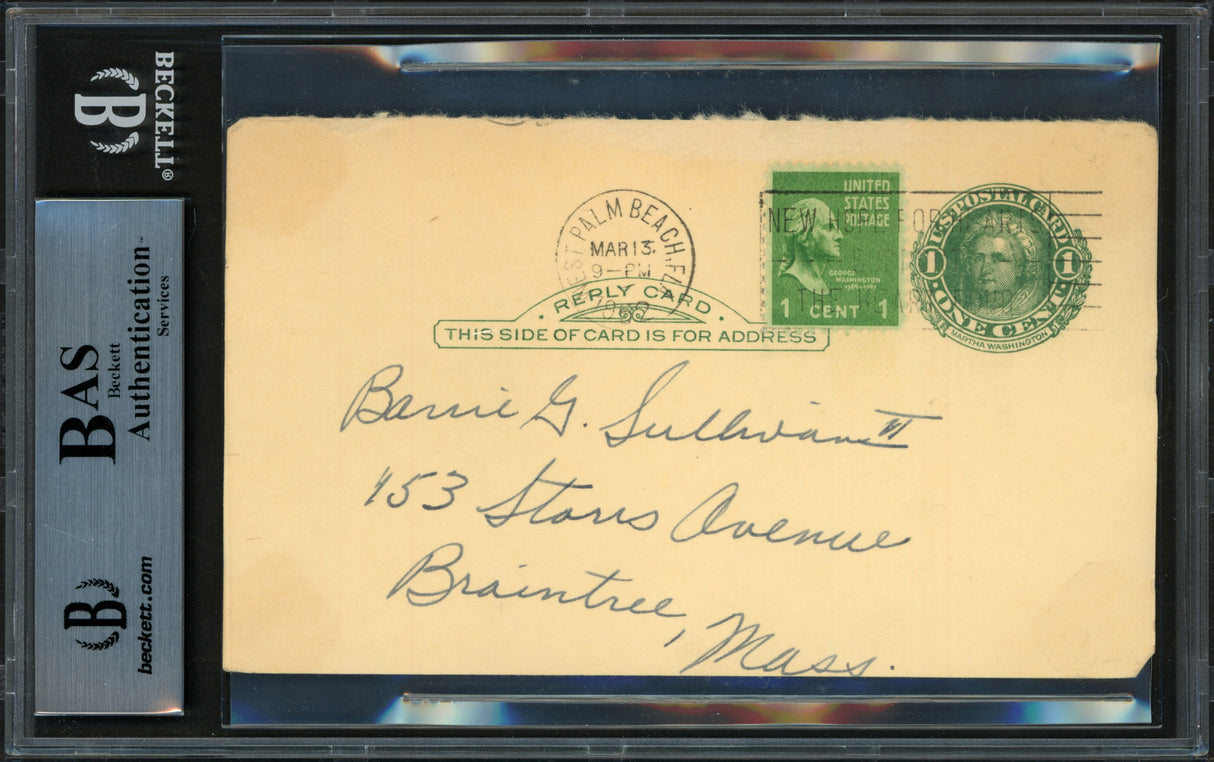 BECKETT®
BAS
Beckett
Authentication™
Services
beckett.com
WEST PALM BEACH, FLA
MAR 13
9-PM
1952
NEW HOPE FOR HEARTS
UNITED
STATES
POSTAGE
GEORGE
WASHINGTON
1789-1797
1 CENT 1
U.S. POSTAL CARD
1 1
ONE CENT
MARTHA WASHINGTON
REPLY CARD
THIS SIDE OF CARD IS FOR ADDRESS
Barrie G. Sullivan II
153 Storrs Avenue
Braintree, Mass.